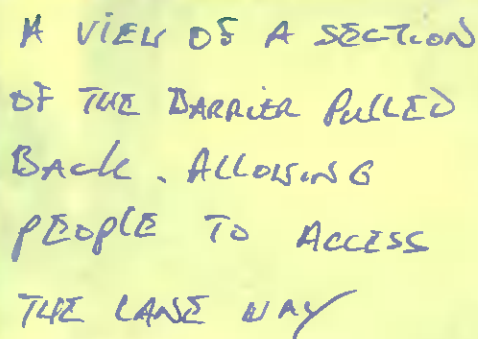 A VIEW OF A SECTION
OF THE BARRIER PULLED
BACK. ALLOWING
PEOPLE TO ACCESS
THE LANE WAY